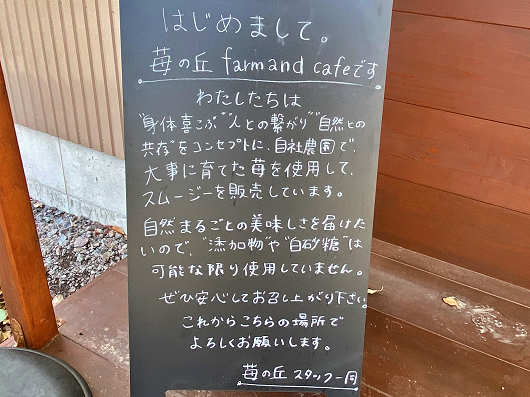 はじめまして。
苺の丘 farm and cafeです
わたしたちは
"身体喜こぶ" "人との繋がり" "自然との
共存"をコンセプトに、自社農園で、
大事に育てた苺を使用して、
スムージーを販売しています。
自然まるごとの美味しさを届けた
いので、"添加物"や"白砂糖"は
可能な限り使用していません。
ぜひ安心してお召し上がり下さい。
これからこちらの場所で
よろしくお願いします。
苺の丘 スタッフ一同